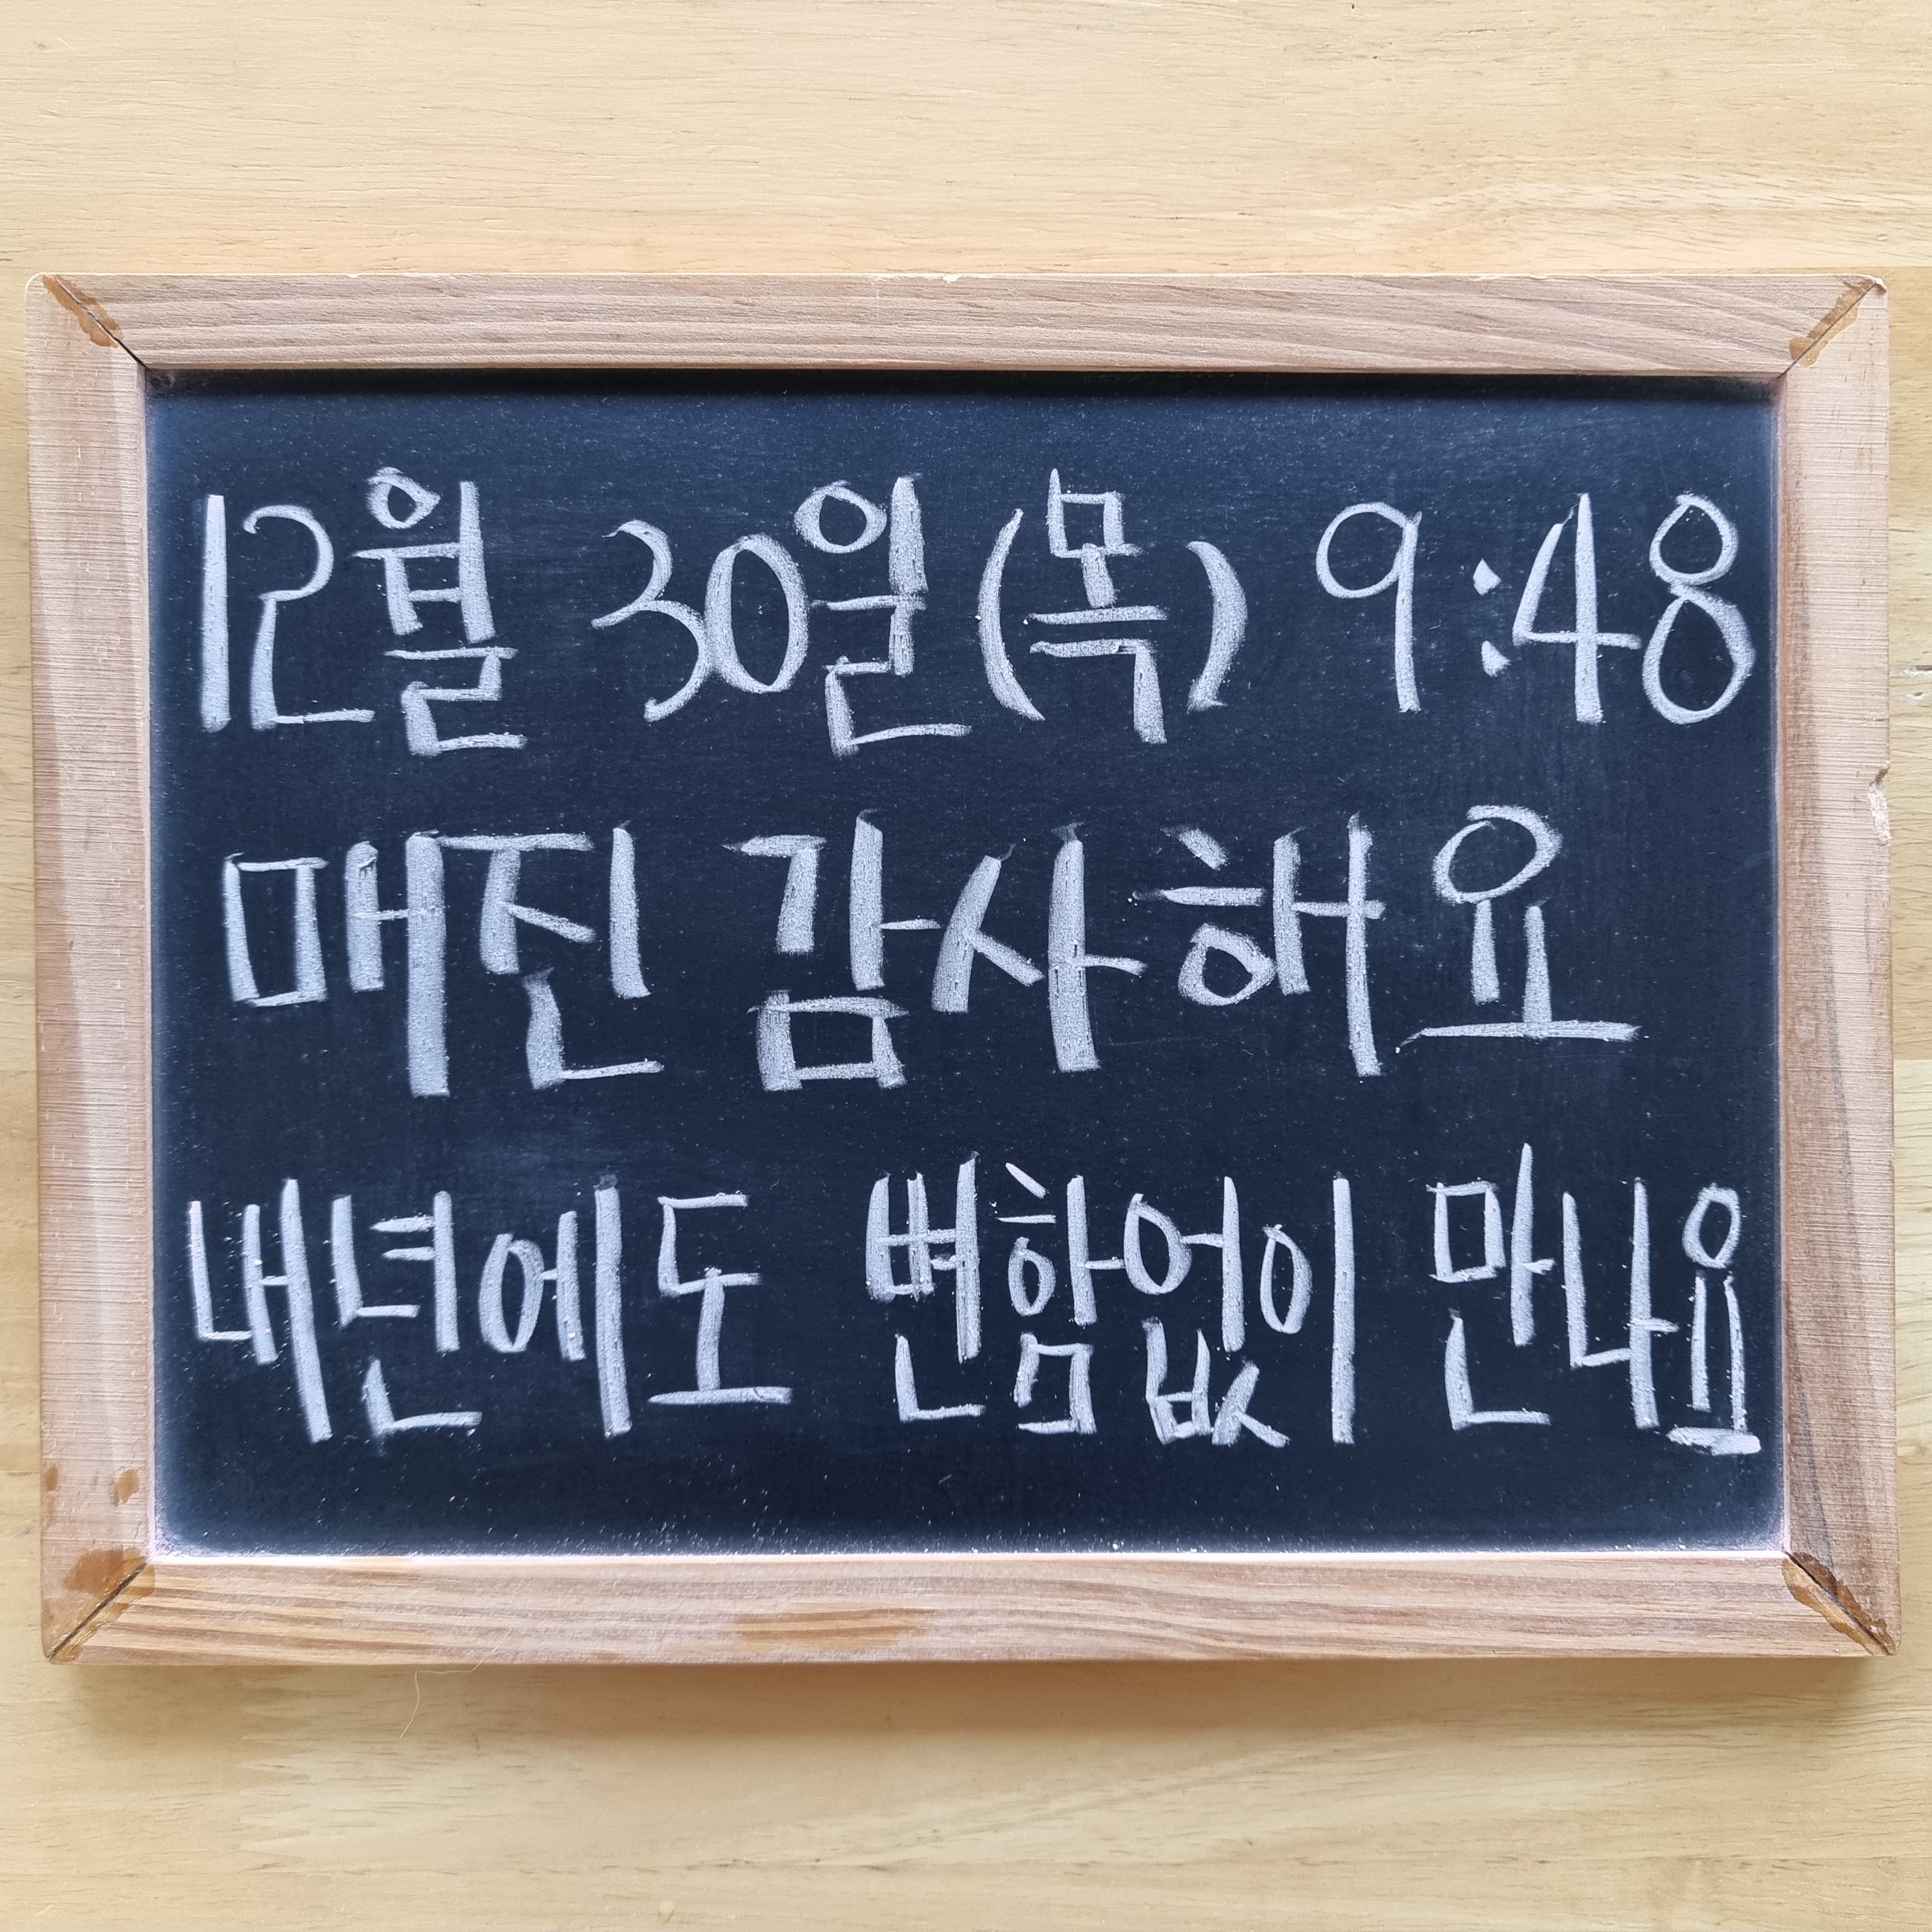 12월 30일(목) 9:48
매진 감사해요
내년에도 변함없이 만나요